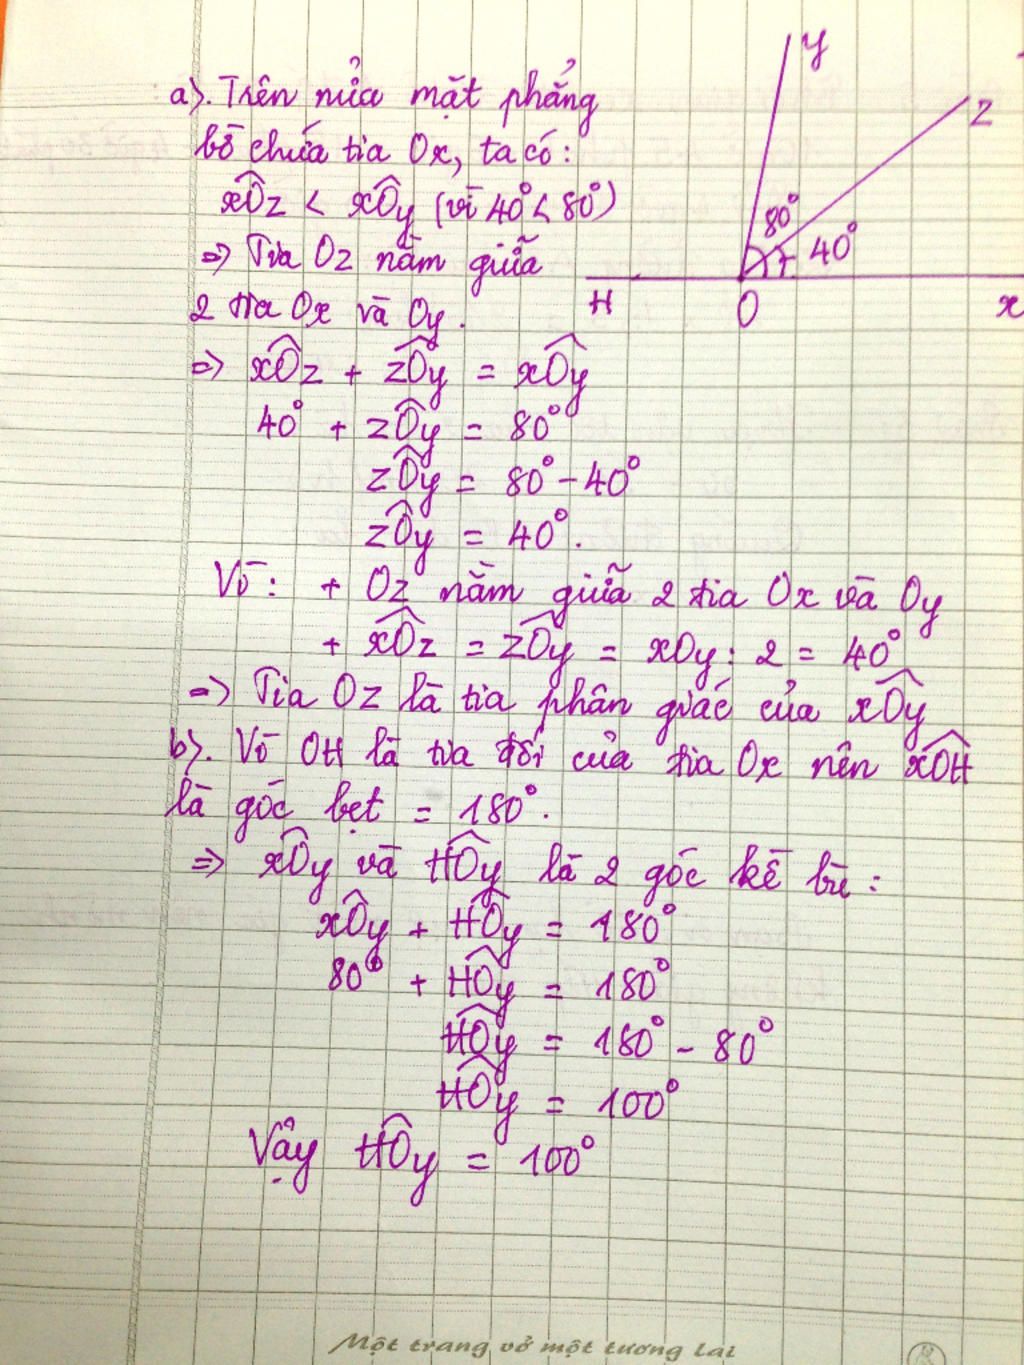 a). Trên nửa mặt phẳng
bờ chứa tia Ox, ta có:
xÔz < xÔy (vì 40° < 80°)
=> Tia Oz nằm giữa
2 tia Ox và Oy.
=> xÔz + zÔy = xÔy
40° + zÔy = 80°
zÔy = 80° - 40°
zÔy = 40°.
Vì: + Oz nằm giữa 2 tia Ox và Oy
+ xÔz = zÔy = xOy : 2 = 40°
=> Tia Oz là tia phân giác của xÔy
b). Vì OH là tia đối của tia Ox nên xÔH
là góc bẹt = 180°.
=> xÔy và HÔy là 2 góc kề bù:
xÔy + HÔy = 180°
80° + HÔy = 180°
HÔy = 180° - 80°
HÔy = 100°
Vậy HÔy = 100°
y
z
80°
40°
H O x
Một trang vở một tương lai